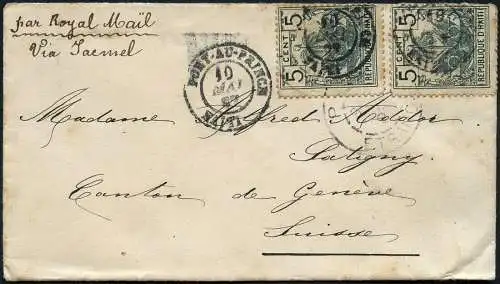 par Royal Mail
Via Jacmel
PORT-AU-PRINCE
10
MAI
HAITI
5 CENT 5
REPUBLIQUE D'HAITI
5 CENT 5
REPUBLIQUE D'HAITI
Madame Fred Ador
Satigny
Canton de Genève
Suisse